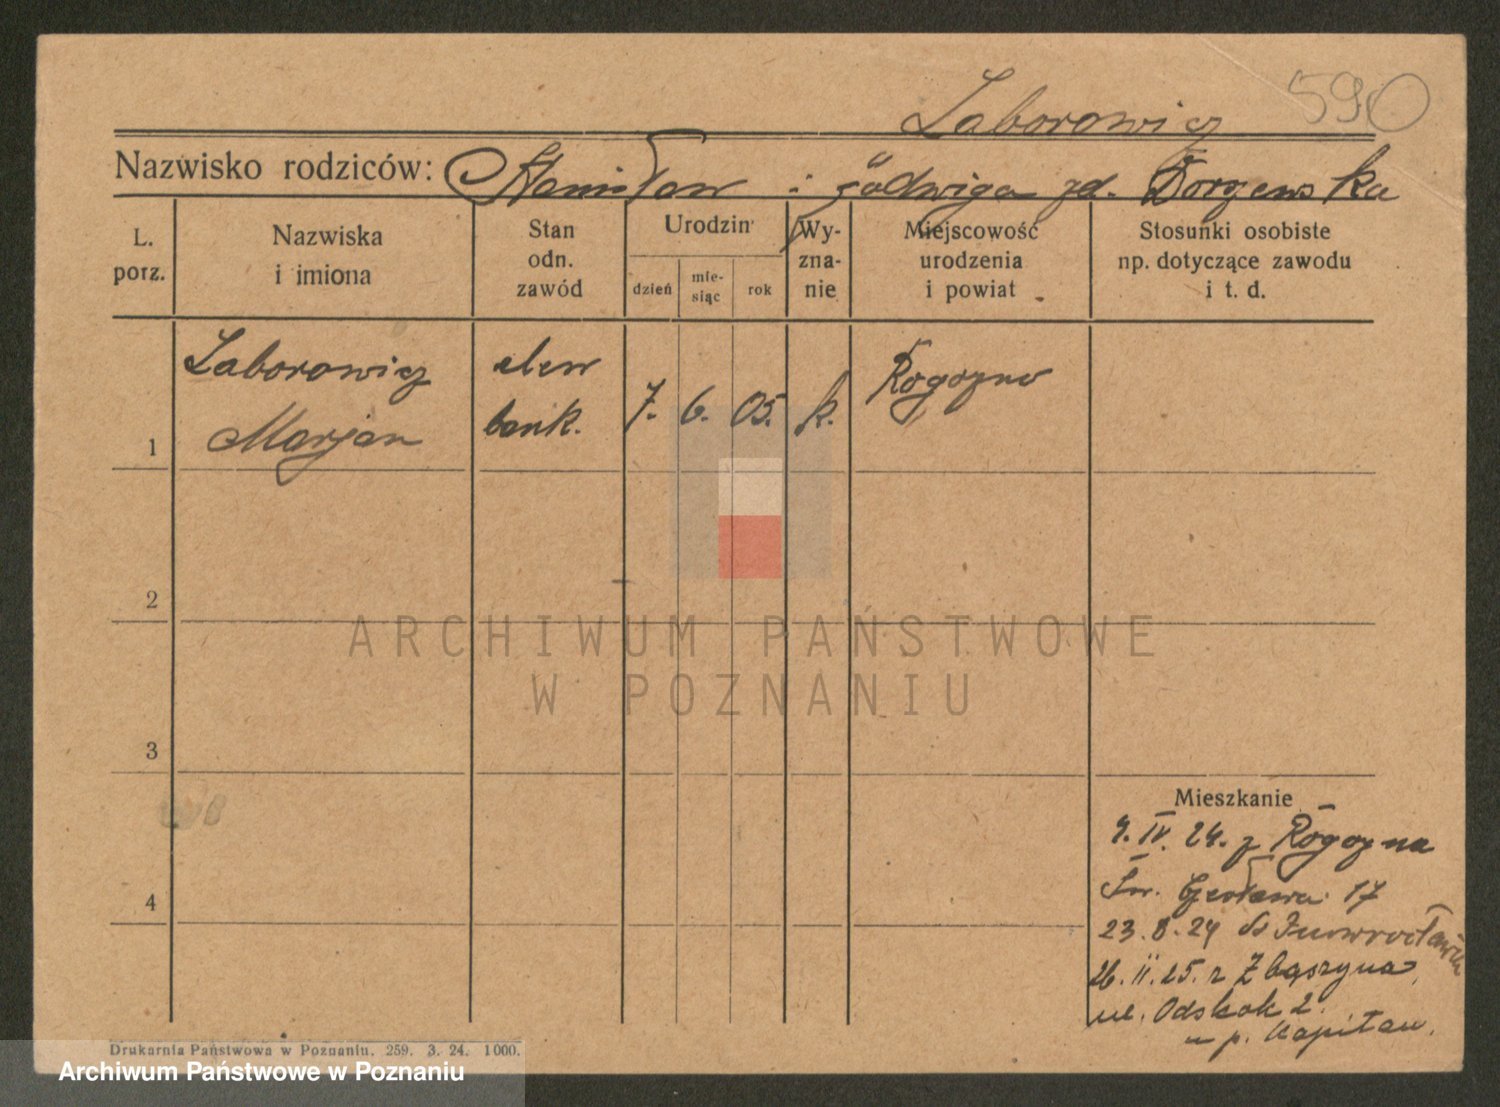 590
Laborowicz
Nazwisko rodziców: Stanisław i Jadwiga zd. Dorzewska
L. porz.
Nazwiska i imiona
Stan odn. zawód
Urodzin
dzień
mie-siąc
rok
Wy-zna-nie
Miejscowość urodzenia i powiat
Stosunki osobiste np. dotyczące zawodu i t. d.
1
Laborowicz
Marjan
elew
bank.
7. 6. 05. k.
Rogozno
2
3
4
Mieszkanie
9. IV. 24. z Rogozna
Św. Czesława 17
23. 8. 24 do Inowrocławia
26. II. 25. z Zbąszyna
ul. Odskok 2.
u p. Kapitan.
Drukarnia Państwowa w Poznaniu. 259. 3. 24. 1000.
ARCHIWUM PAŃSTWOWE
W POZNANIU
Archiwum Państwowe w Poznaniu